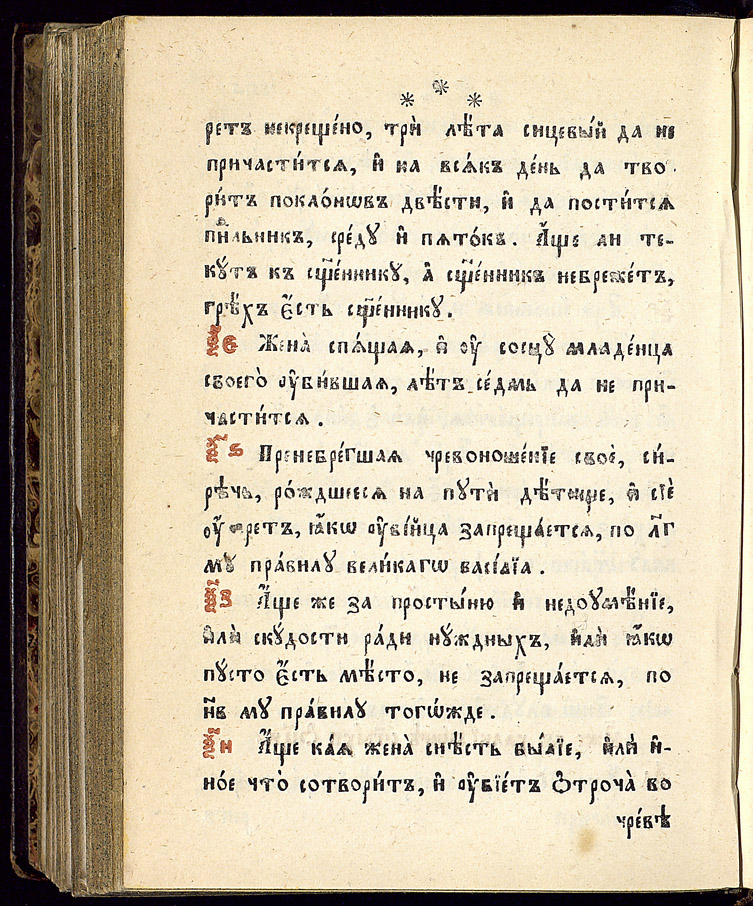 * * *
ретъ некреще́но, трѝ лѣ̑та сицевы́й да не
причасти́тся, и҆ на всѧ́къ де́нь да тво
ри́тъ покло́нѡвъ двѣ́сти, и҆ да пости́тсѧ
среду̀ и҆ пѧто́къ. А҆́ще ли те-
ку́тъ къ сщ҃е́ннику, а҆ сщ҃е́нникъ небреже́тъ,
грѣ́хъ є҆́сть сщ҃е́ннику.
є Жена̀ спѧ́щаѧ, и҆ оу҆ сосцꙋ̀ младе́нца
своего̀ оу҆би́вшая, лѣ́тъ се́дмь да не при-
части́тся.
ѕ Пренебре́гшаѧ чревоноше́нїе своѐ, си́-
рѣчь, ро́ждшееся на путѝ дѣ́тище, и҆ сїѐ
ꙗ҆́кѡ оу҆бі́йца запреща́ется, по л҃г
му пра́вилу вели́кагѡ васі́лїа.
з А҆́ще же за просты́ню и҆ недоумѣ́нїе,
и҆лѝ ску́дости ра́ди ну́ждныхъ, и҆лѝ ꙗ҆́кѡ
пу́сто є҆́сть мѣ́сто, не запреща́ется, по
н҃в му пра́вилу тогѡ́жде.
и А҆́ще ка́ѧ жена̀ снѣ́сть бы́лїе, и҆лѝ и҆-
но́е что̀ сотвори́тъ, и҆ оу҆бїе́тъ ѻ҆троча̀ во
чре́вѣ